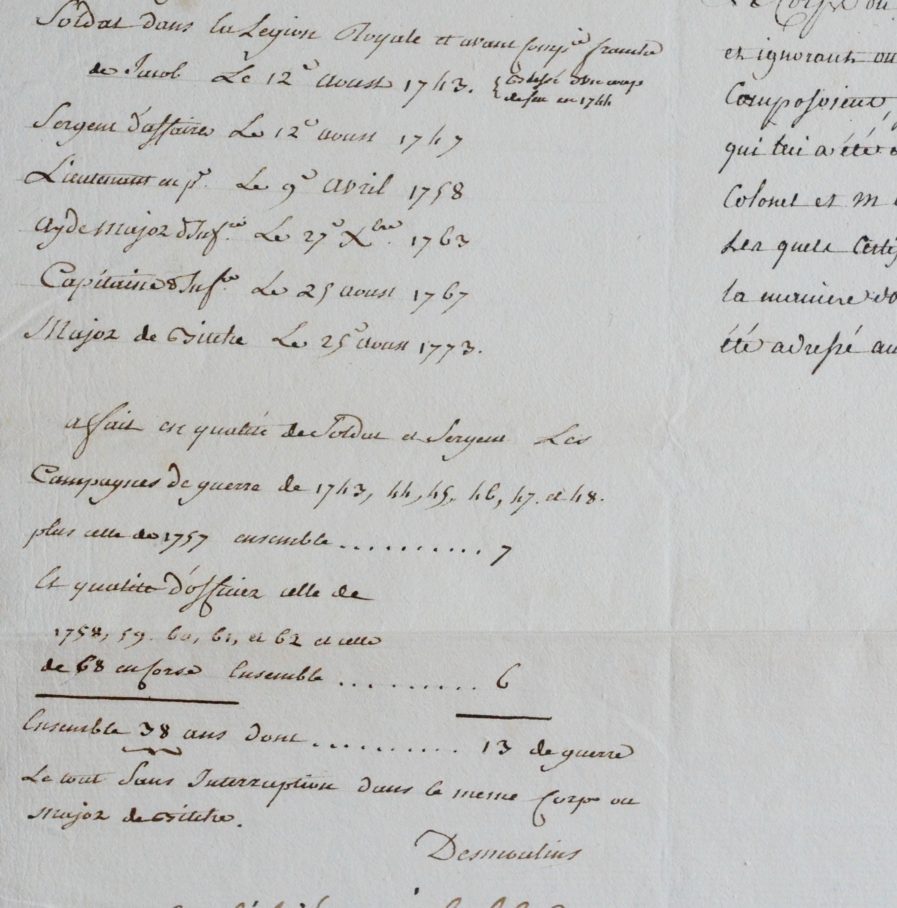 Soldat dans la Legion Royale et avant Comp.ie franche
de Jacob Le 12.e aoust 1743. Blessé d'un coup
de feu en 1744
Sergent d'affaires Le 12.e aoust 1747
Lieutenant en p.r Le 9.e avril 1758
ayde Major d'Inf.rie Le 27.e Xbre 1763
Capitaine d'Inf.rie Le 25 aoust 1767
Major de Bitche Le 25.e aoust 1773.
a fait en qualité de Soldat et Sergent Les
Campagnes de guerre de 1743, 44, 45, 46, 47. et 48.
plus celle de 1757 ensemble .......... 7
Et qualité d'officier celle de
1758, 59. 60, 61, et 62 et celle
de 68 en Corse Ensemble .......... 6
Ensemble 38 ans dont .......... 13 de guerre
Le tout Sans Interruption dans le meme Corps ou
Major de Bitche.
Desmoulins
Corps ou
et ignorant ou
Composoient,
qui lui a été
Colonel et M
Les quels Certi
la maniere do
été adressé au